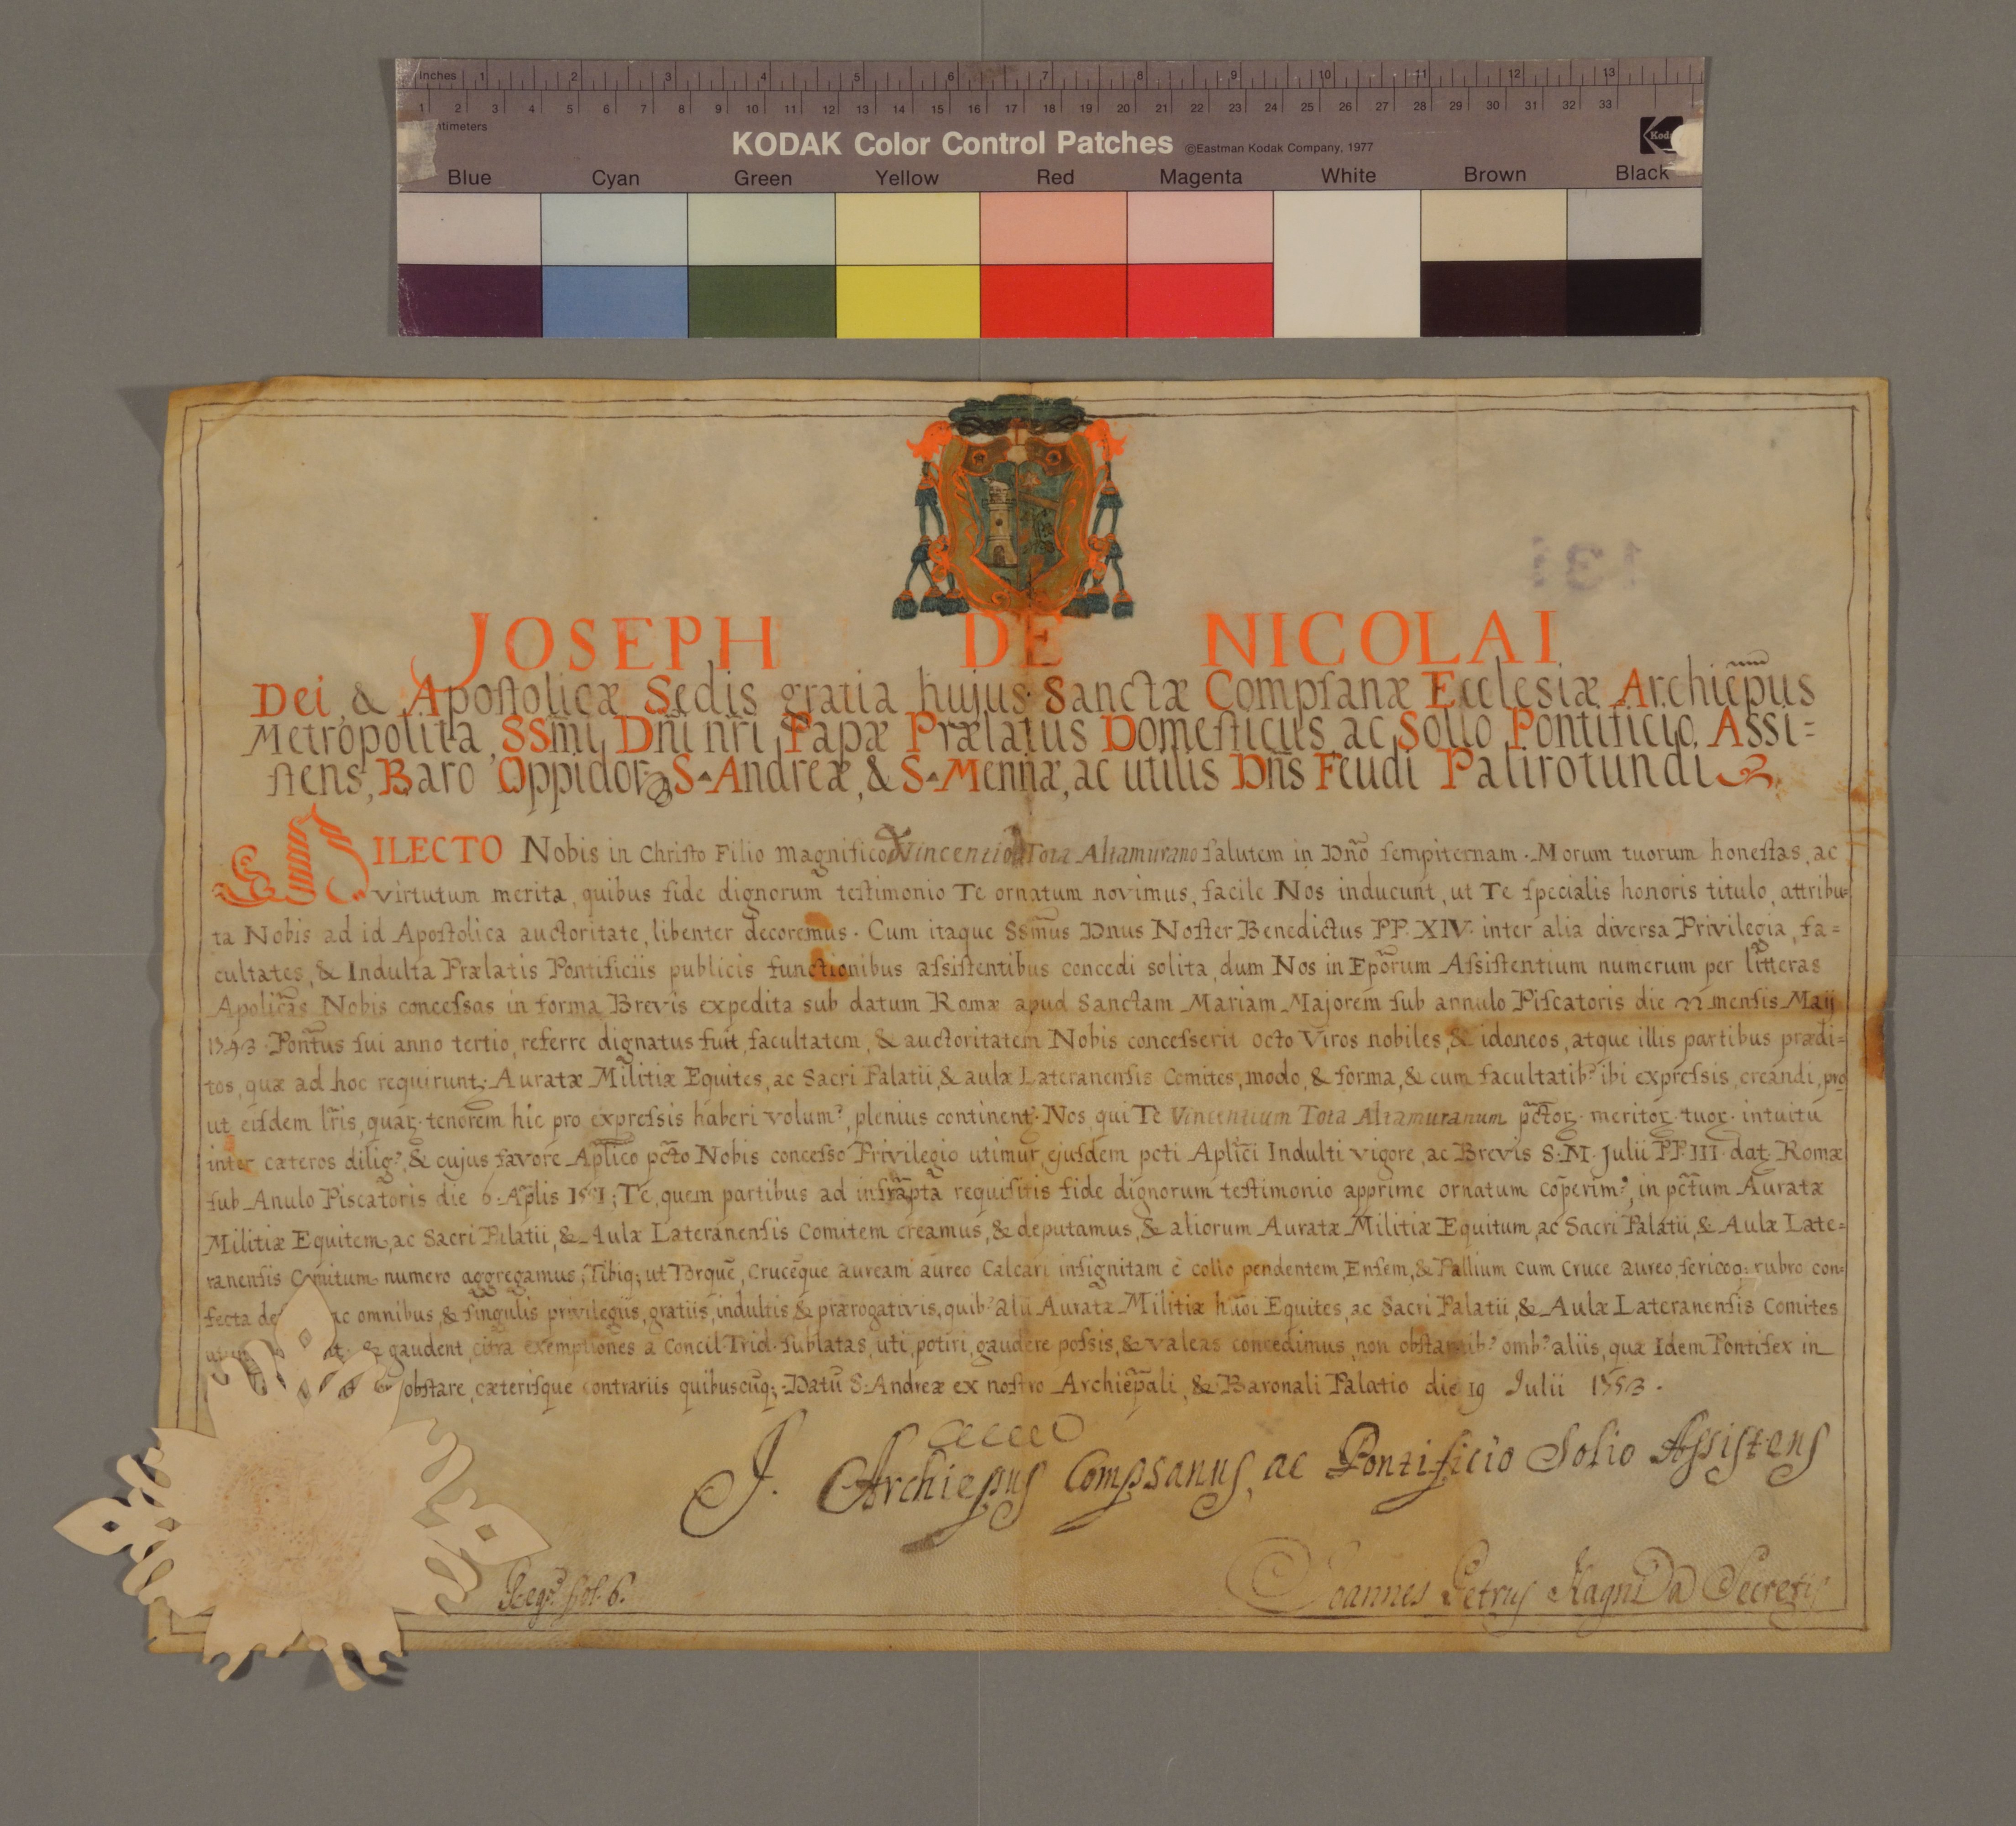 inches 1 2 3 4 5 6 7 8 9 10 11 12 13
1 2 3 4 5 6 7 8 9 10 11 12 13 14 15 16 17 18 19 20 21 22 23 24 25 26 27 28 29 30 31 32 33
KODAK Color Control Patches ©Eastman Kodak Company, 1977
Blue Cyan Green Yellow Red Magenta White Brown Black
JOSEPH DE NICOLAI
Dei, & Apoſtolicæ Sedis gratia hujus Sanctæ Compſanæ Eccleſiæ Archiēpus
Metropolita, SSm̃i Dñi nr̃i Papæ Prælatus Domeſticus, ac Solio Pontificio Assi=
ſtens, Baro Oppidor S. Andreæ, & S. Mennæ, ac utilis Dñs Feudi Palirotundi
DILECTO Nobis in Chriſto Filio magnifico Vincentio Tota Altamurano ſalutem in Dnõ ſempiternam. Morum tuorum honeſtas, ac
virtutum merita, quibus fide dignorum teſtimonio Te ornatum novimus, facile Nos inducunt, ut Te ſpecialis honoris titulo, attribu=
ta Nobis ad id Apoſtolica auctoritate, libenter decoremus. Cum itaque Ssm̃us Dnus Noſter Benedictus PP. XIV. inter alia diverſa Privilegia, fa=
cultates, & Indulta Prælatis Pontificiis publicis functionibus aſsiſtentibus concedi solita, dum Nos in Epõrum Aſsiſtentium numerum per lĩtteras
Apolicãs Nobis conceſsas in forma Brevis expedita sub datum Romæ apud Sanctam Mariam Majorem ſub annulo Piſcatoris die menſis Maij
1743. Pontũs ſui anno tertio, referre dignatus fuit, facultatem, & auctoritatem Nobis conceſserit octo Viros nobiles, & idoneos, atque illis partibus prædi=
tos, quæ ad hoc requirunt; Auratæ Militiæ Equites, ac Sacri Palatii, & aulæ Lateranenſis Comites, modo, & forma, & cum facultatib? ibi expreſsis, creandi, pro
ut eiſdem lr̃is, quar tenorem hic pro expreſsis haberi volum?, plenius continent; Nos, qui Te Vincentium Tota Altamuranum pc̃tor meritor tuor intuitu
inter cæteros dilig?, & cujus favore Aplĩco pc̃to Nobis conceſso Privilegio utimur, ejuſdem pcti Aplĩci Indulti vigore, ac Brevis S. M. Julii PP. III. dat Romæ
ſub Anulo Piscatoris die 6. Apl̃is 1551; Te, quem partibus ad infrãpta requiſitis fide dignorum teſtimonio apprime ornatum coperim?, in pc̃tum Auratæ
Militiæ Equitem, ac Sacri Palatii, & Aulæ Lateranenſis Comitem creamus, & deputamus, & aliorum Auratæ Militiæ Equitum, ac Sacri Palatii, & Aulæ Late=
ranenſis Comitum numero aggregamus; Tibiq; ut Torquẽ, Crucẽque auream aureo Calcari inſignitam è collo pendentem, Enſem, & Pallium cum Cruce aureo, ſericoq: rubro con=
fecta ac omnibus, & ſingulis privilegiis, gratiis, indultis & prærogativis, quib? alii Auratæ Militiæ hm̃oi Equites, ac Sacri Palatii, & Aulæ Lateranenſis Comites
& gaudent, citra exemptiones a Concil. Trid. ſublatas, uti, potiri, gaudere poſsis, & valeas concedimus, non obſtantib? omb? aliis, quæ Idem Pontifex in
obſtare, cæteriſque contrariis quibuscũq; Datũ S. Andreæ ex noſtro Archiẽpali, & Baronali Palatio die 19 Julii 1753.
J. Archiepus Compsanus, ac Pontificio Solio Assistens
Regta fol. 6.
Joannes Petrus Magni a Secretis